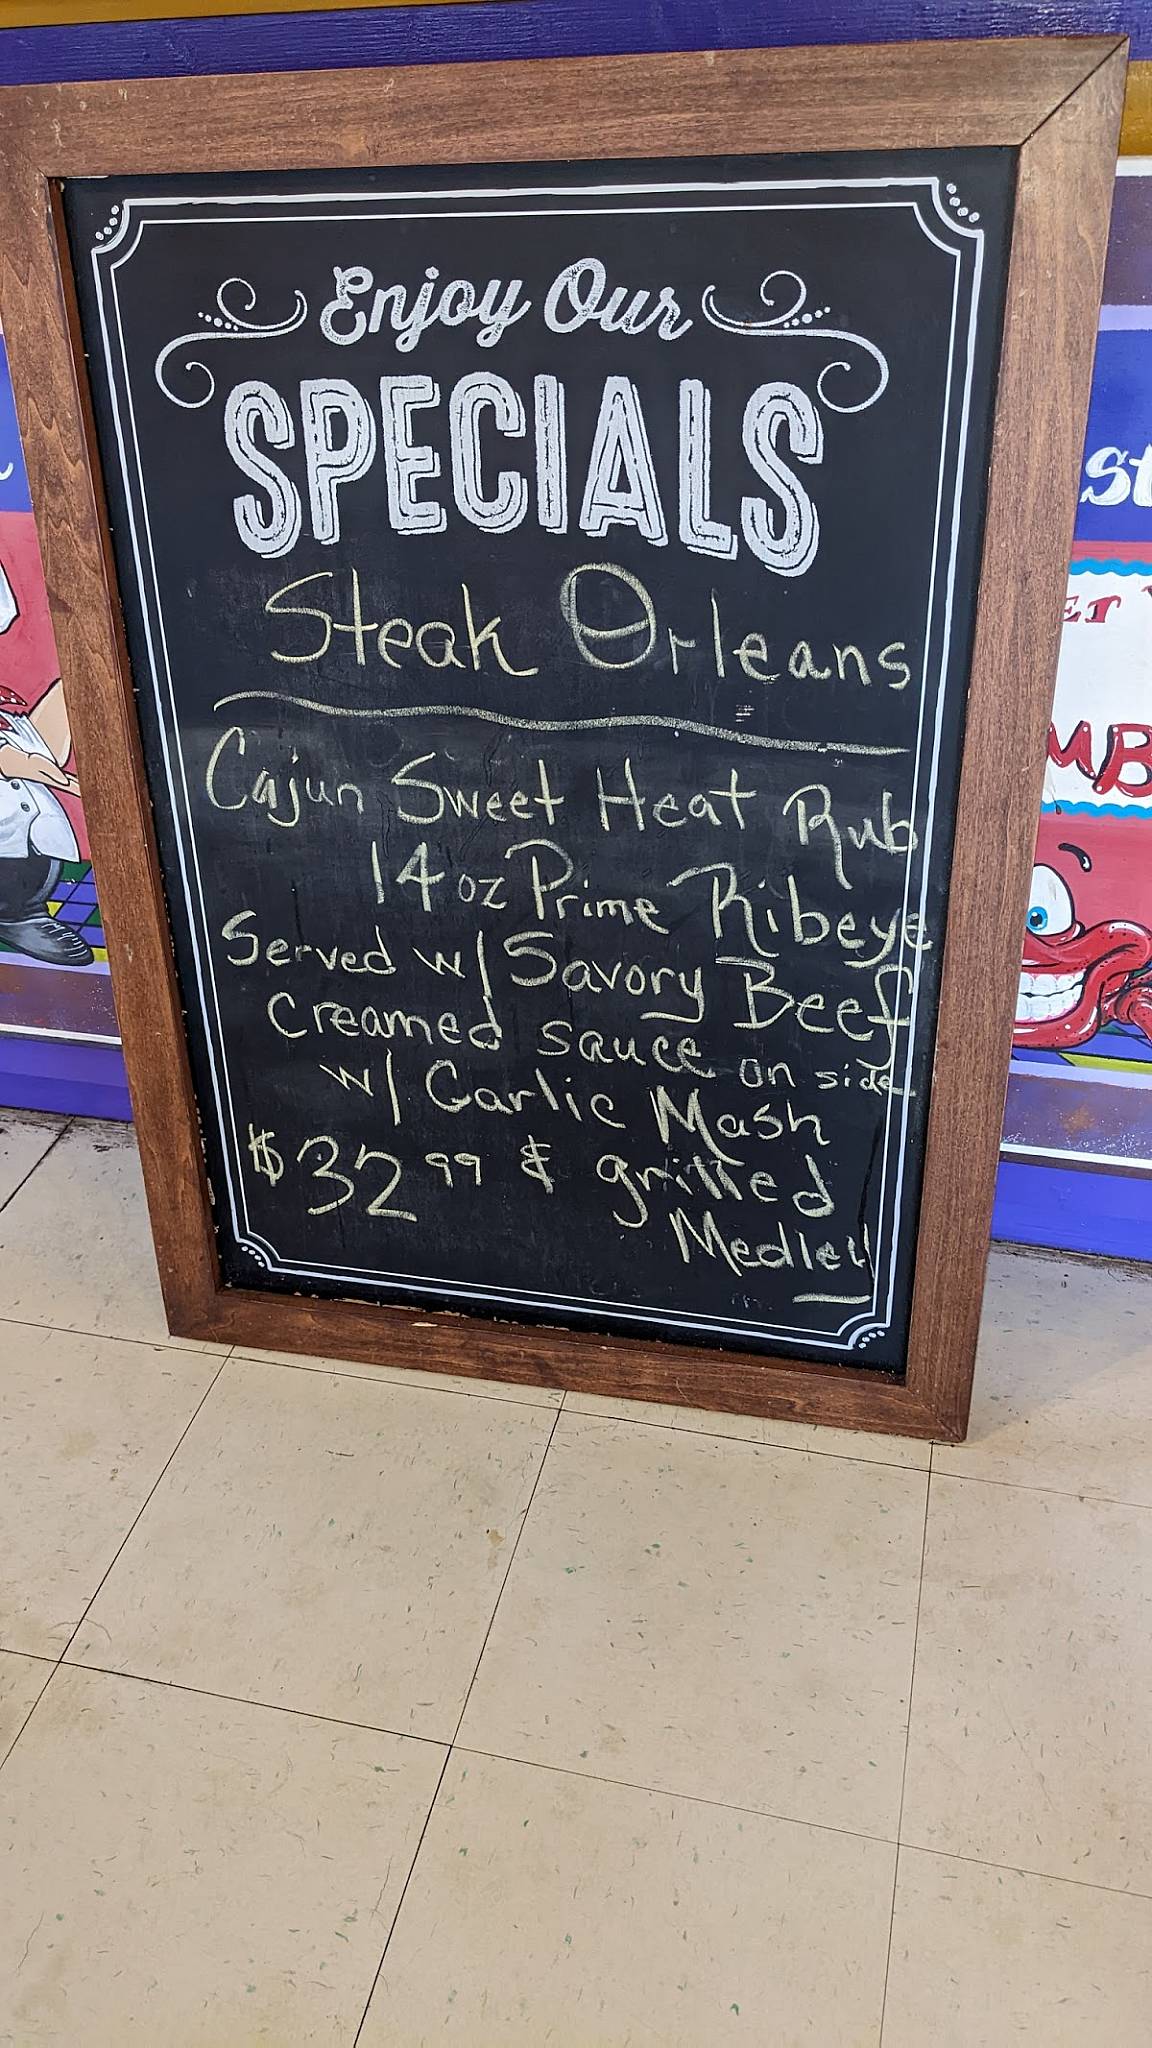 Enjoy Our
SPECIALS
Steak Orleans
Cajun Sweet Heat Rub
14 oz Prime Ribeye
Served w/ Savory Beef
Creamed sauce on side
w/ Garlic Mash
$32.99 & grilled
Medley
St
ET
MB